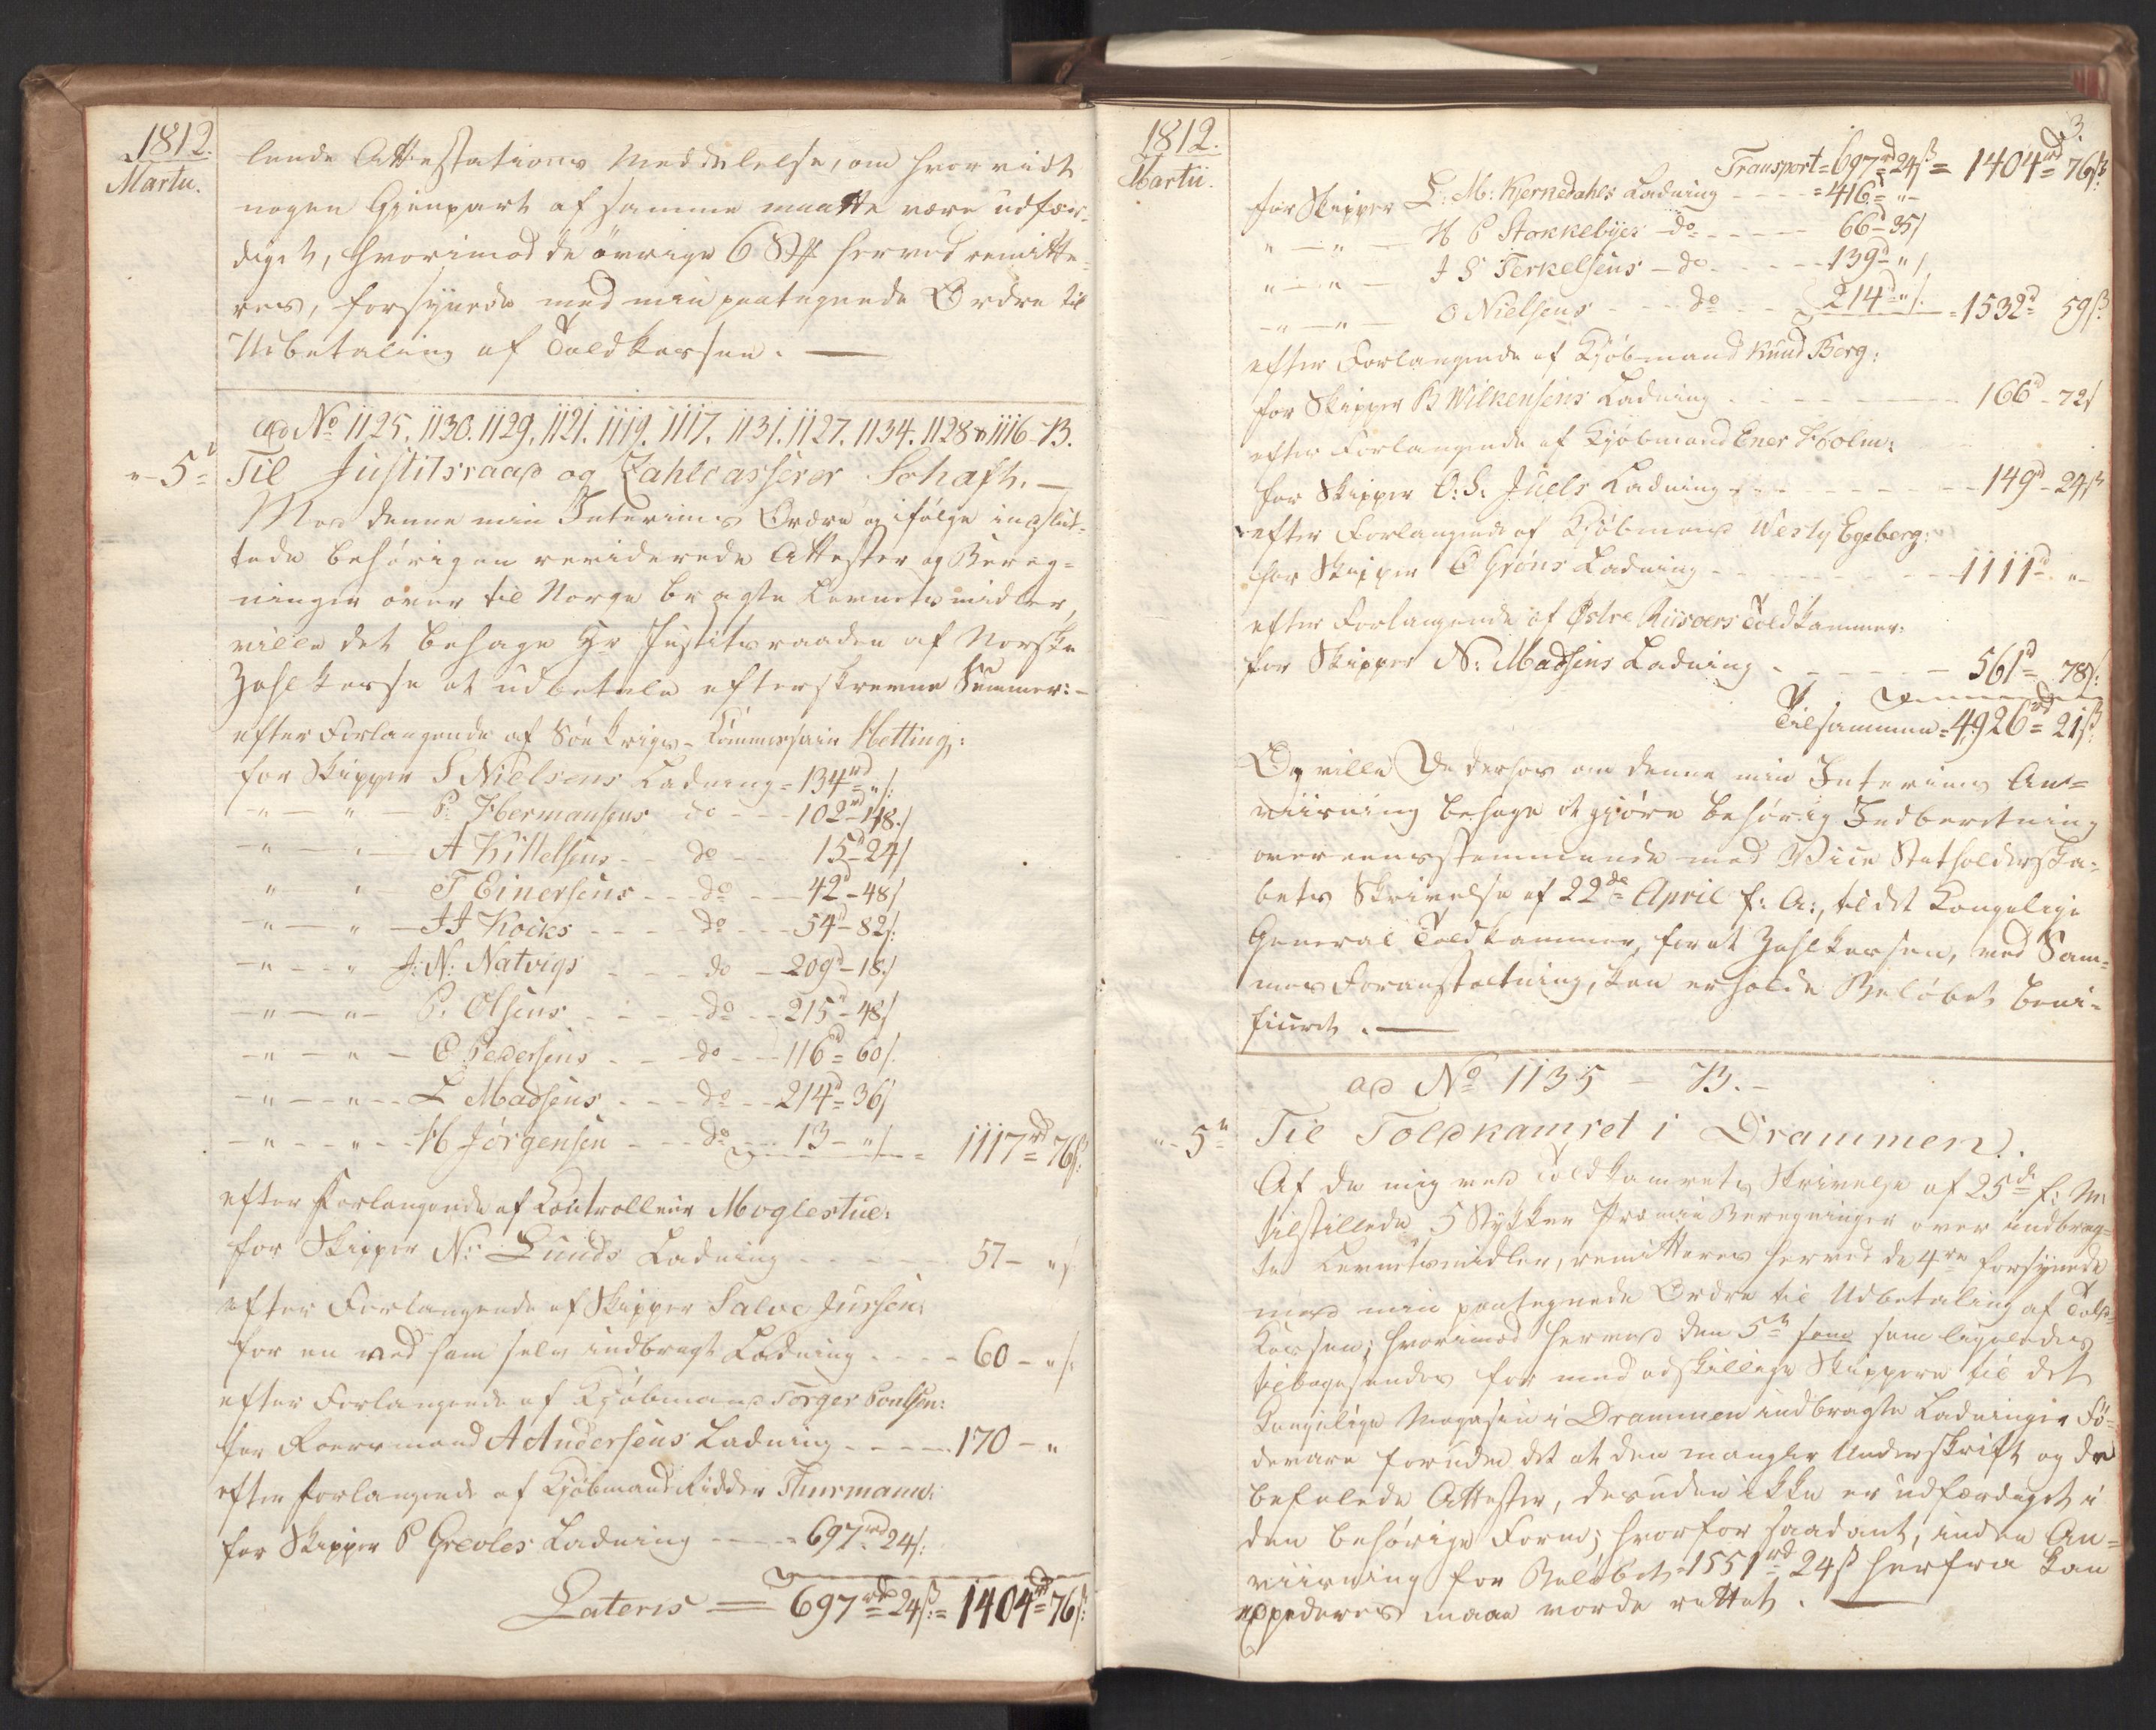 1812.
Martii.
lende Attestations Meddelelse, om hvorvidt
nogen Gjenpart af samme maatte være udfær-
diget, hvorimod de øvrige 6 Stk herved remitte-
res, forsynede med min paategnede Ordre til
Udbetaling af Toldkassen. —
ad No 1125. 1130. 1129. 1121. 1119. 1117. 1131. 1127. 1134. 1128 & 1116 - B.
" - 5te Til Justitsraad og Zahlcasserer Schaft. —
Mod denne min Interims Ordre og ifølge indslut-
tede behørigen reviderede Attester og Bereg-
ninger over til Norge bragte Levnetsmidler,
ville det behage Hr Justitsraaden af Norske
Zahlkasse at udbetale efterskrevne Summer: -
efter Forlangende af Söe Krigs-Commissair Hetting:
for Skipper S Nielsens Ladning = 134rd = " s:
- " - " - P. Hermansens do - - 102rd - 48 s
- " - " - A Kittelsens - - do - - 15d - 24 s
" " - T Einersens - - do - - 42d - 48 s
- " - " - J J Kocks - - - do - - 54d - 82 s:
- " - " J: N: Natvigs - - - do - 209d - 18 s
- " - " - P. Olsens - - - do - - 215d - 48 s
- " - " - E Pedersens - - do - - 116d = 60 s.
- " - " - L Madsens - - - do - - 214d = 36 s
- " - " - H Jørgensen - - do - - 13 - " s = 1117rd = 76 s:
efter Forlangende af Controlleur Moglestue:
for Skipper N: Lunds Ladning - - - - - 57 - " s
efter Forlangende af Skipper Salve Jussen:
for en ved ham selv indbragt Ladning - - - - 60 - " s:
efter Forlangende af Kjøbmand Törger Poulsen:
for Roersmand A Andersens Ladning - - - - 170 - "
efter Forlangende af Kjøbmand Ridder Thurmann:
for Skipper P Grevles Ladning - - - = 697rd 24 s:
Lateris = 697rd = 24 s: = 1404rd = 76 s:
3.
1812.
Martii.
Transport = 697rd = 24 s = 1404rd = 76 s:
for Skipper L: M: Kjernedahls Ladning - - - = 416d = " -
" - " - H P Stokkebyes - do - - - - - 66d - 35 s
" - " - J S Terkelsens - do - - - - - 139d - " s
- " - " - O Nielsens - - - do - - - 214d = " s. = 1532d 59 s:
efter Forlangende af Kjøbmand Knud Borg:
for Skipper B Wilkensens Ladning - - - - - - 166d - 72 s
efter Forlangende af Kjøbmand Ener Holm:
for Skipper O: S: Juels Ladning - - - - - - 149d - 24 s
efter Forlangende af Kjøbmand Westy Egeberg:
for Skipper C Grøns Ladning - - - - - - - 1111d. " -
efter Forlangende af Østre Riisoers Toldkammer:
for Skipper N: Madsens Ladning - - - - - 561d = 78 s:
Tilsammen = 4926rd = 21 s:
Og ville De derhos om denne min Interims An-
viisning behage at gjøre behørig Indberetning
overeensstemmende med Vice Statholderska-
bets Skrivelse af 22de April f: A:, til det Kongelige
General Toldkammer, for at Zahlkassen, ved Sam-
mes Foranstaltning, kan erholde Beløbet beni-
ficeret. —
ad No 1135 - B. -
" - 5te Til Toldkamret i Drammen.
Af de mig med Toldkamrets Skrivelse af 25de f: M:
tilstillede 5 Stykker Præmie Beregninger over indbrag-
te Levnetsmidler, remitteres herved de 4re forsynede
med min paategnede Ordre til Udbetaling af Told-
Kassen; hvorimod herved den 5te som ligeledes
tilbagesendes for med adskillige Skippere til det
Kongelige Magasin i Drammen indbragte Ladninger Fö-
devare foruden det at den mangler Underskrift og de
befalede Attester, desuden ikke er udfærdiget i
den behørige Form; hvorfor saadant, inden An-
viisning for Beløbet 1551rd 24 s herfra kan
expederes maae vorde rettet. —